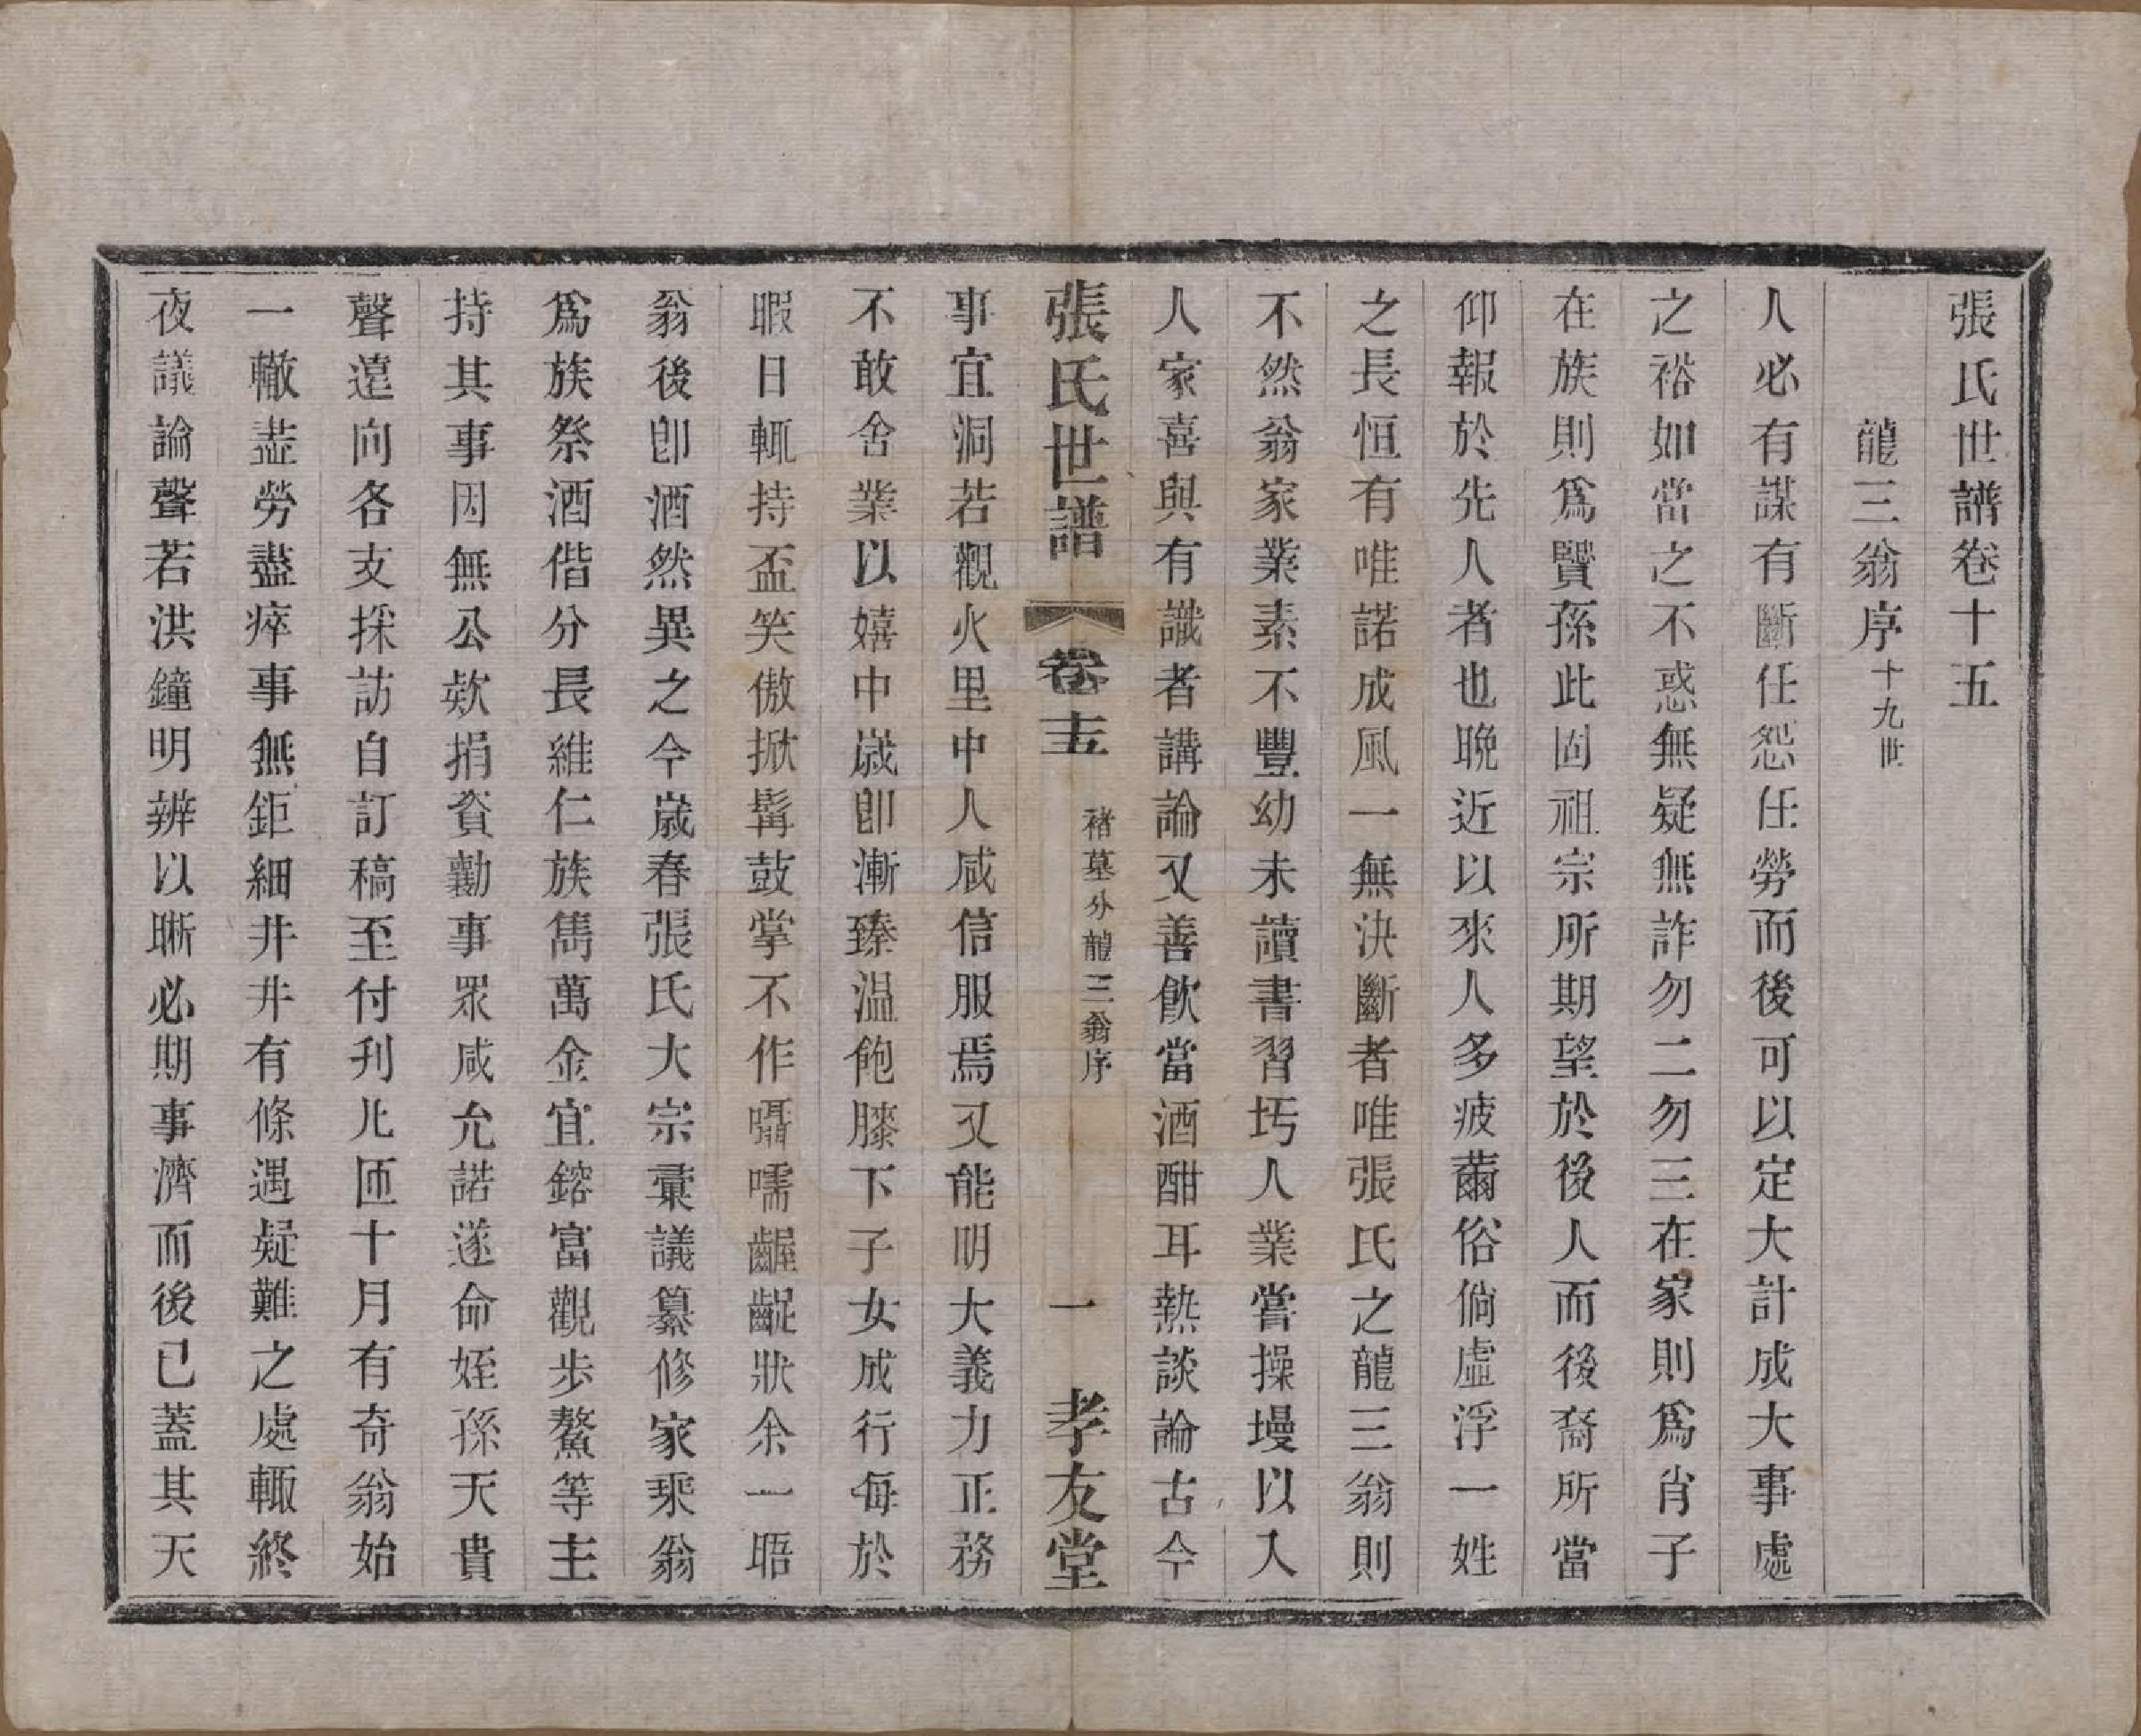 張氏世譜卷十五
龍三翁序十九世
人必有謀有斷任怨任勞而後可以定大計成大事處
之裕如當之不惑無疑無詐勿二勿三在家則爲肖子
在族則爲賢孫此固祖宗所期望於後人而後裔所當
仰報於先人者也晩近以來人多疲薾俗倘虛浮一姓
之長恒有唯諾成風一無決斷者唯張氏之龍三翁則
不然翁家業素不豐幼未讀書習圬人業嘗操墁以入
人家喜與有識者講論又善飲當酒酣耳熱談論古今
張氏世譜 卷十五 褚墓分龍三翁序 一 孝友堂
事宜洞若觀火里中人咸信服焉又能明大義力正務
不敢舍業以嬉中歲卽漸臻温飽膝下子女成行每於
暇日輒持盃笑傲掀髯鼓掌不作囁嚅齷齪狀余一晤
翁後卽洒然異之今歲春張氏大宗彙議纂修家乘翁
爲族祭酒偕分長維仁族雋萬金宜鎔富觀步鰲等主
持其事因無公欵捐資勸事眾咸允諾遂命姪孫天貴
聲遠向各支採訪自訂稿至付刋凡匝十月有奇翁始
一轍盡勞盡瘁事無鉅細井井有條遇疑難之處輒終
夜議論聲若洪鐘明辨以晰必期事濟而後已蓋其天